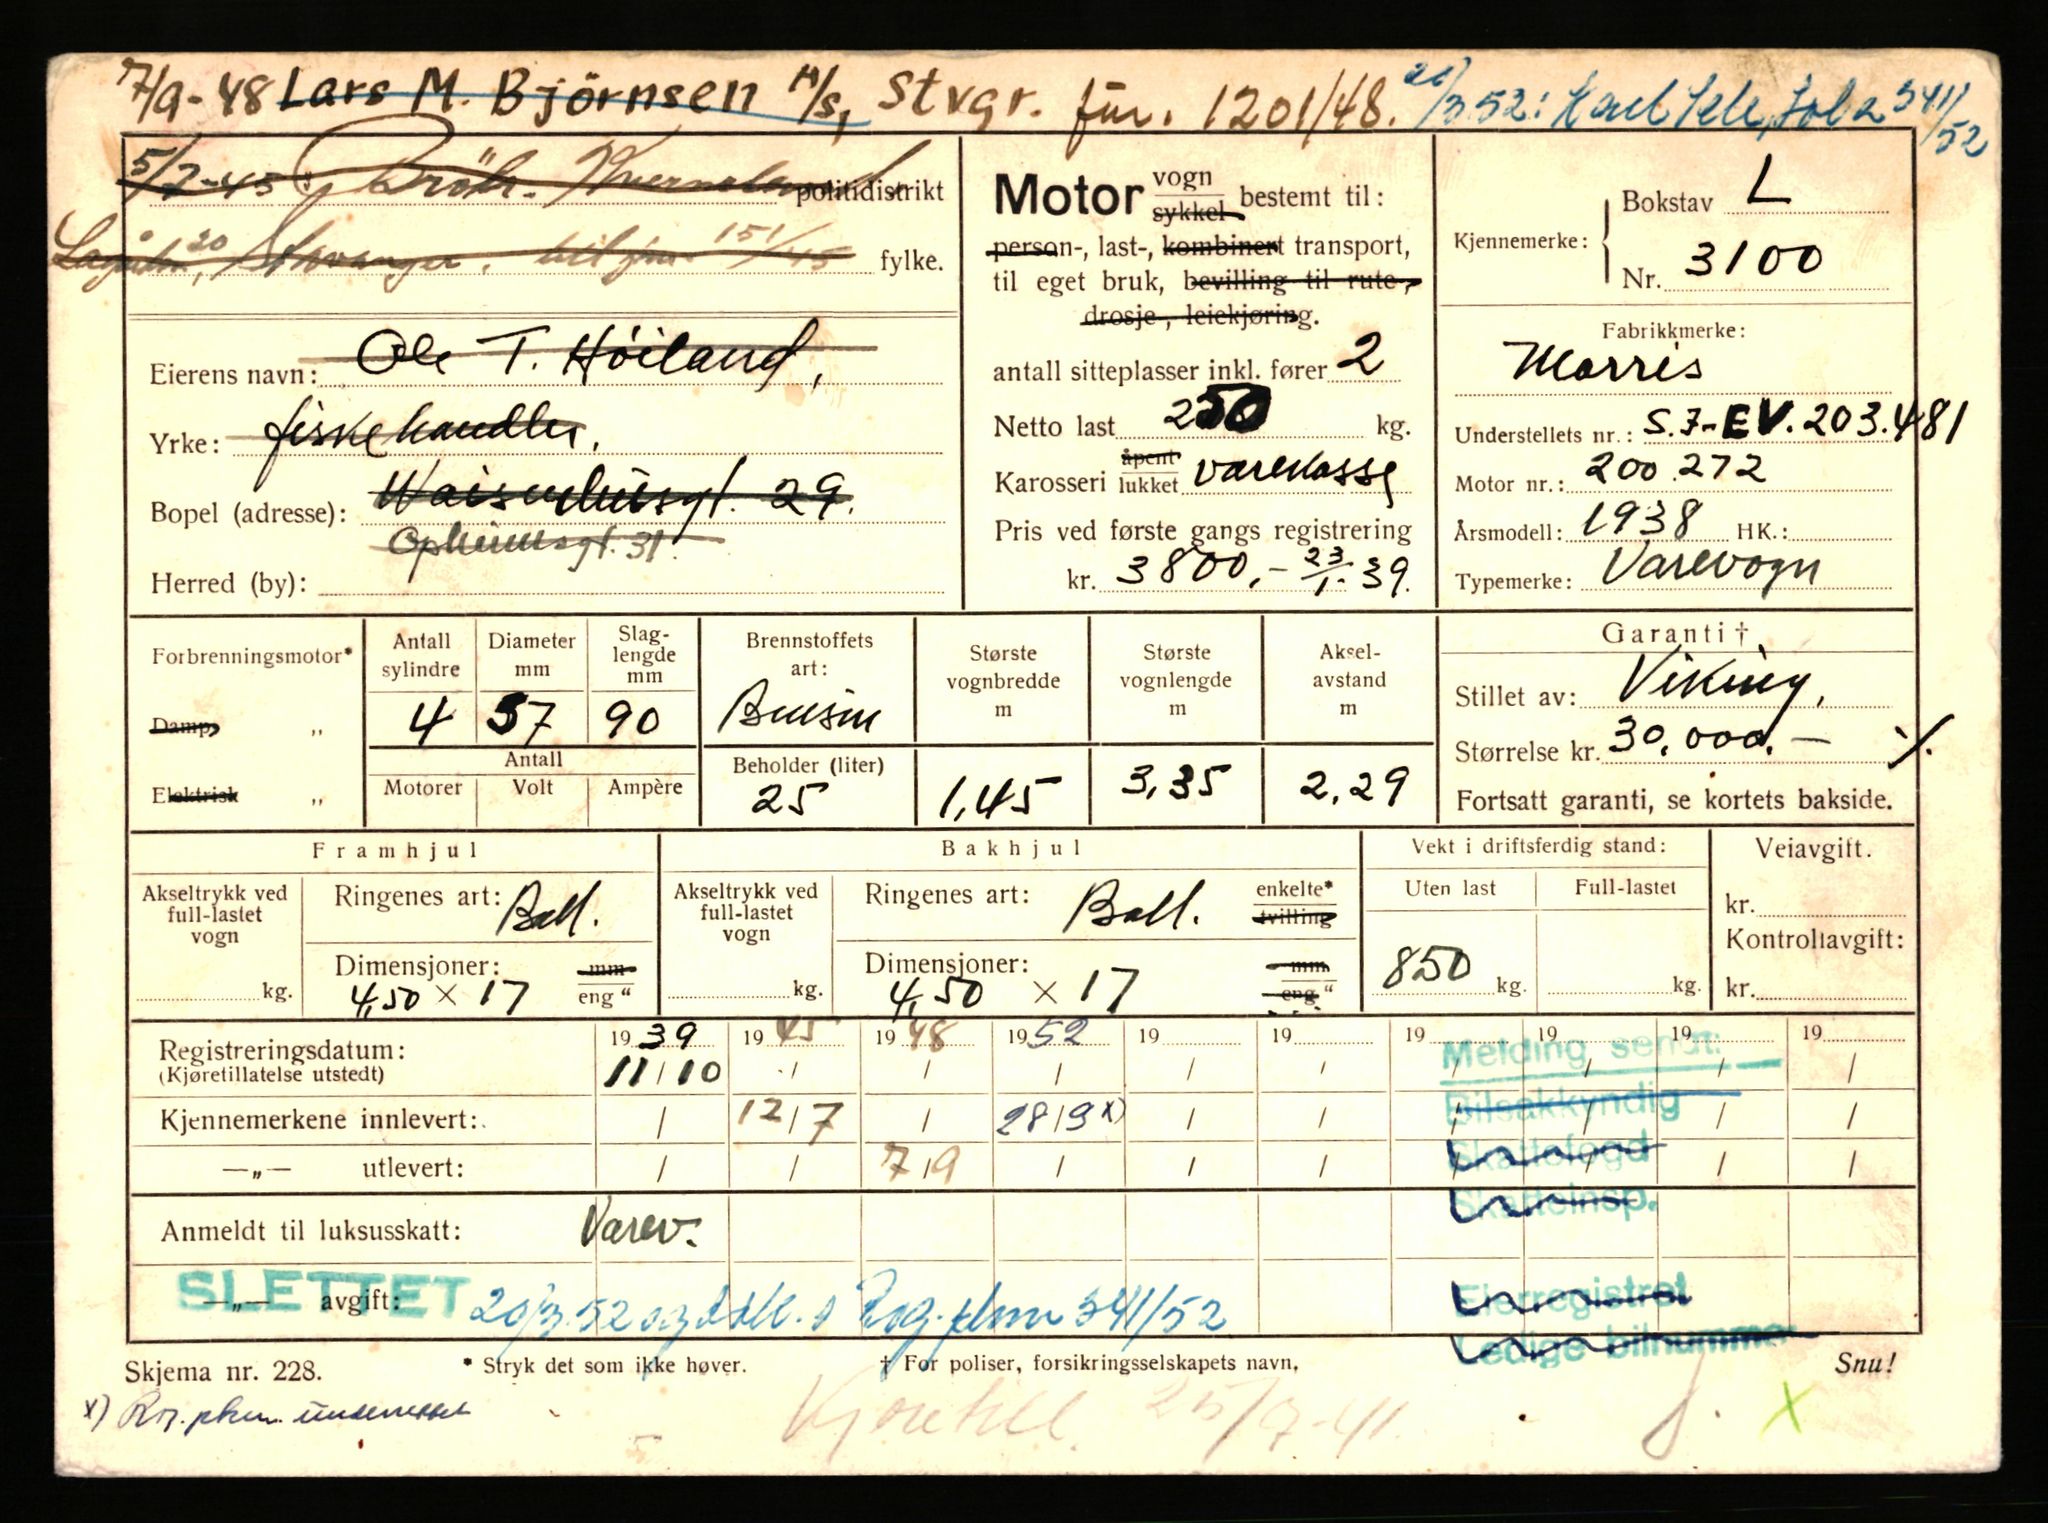 7/9-48 Lars M. Björnsen A/s, Stvgr. für. 1201/48. 20/3 52: Karl Sele, Sola 341/52
5/7-45: Brödr. Kverneland politidistrikt
Lagårdsv. 20, Stavanger. bil jnr. 151/45 fylke.
Eierens navn: Ole T. Höiland,
Yrke: fiskehandler,
Bopel (adresse): Waisenhusgt. 29.
Opheimsgt. 31.
Herred (by):
Motor vogn sykkel bestemt til:
person-, last-, kombinert transport,
til eget bruk, bevilling til rute-,
drosje-, leiekjøring.
antall sitteplasser inkl. fører 2
Netto last 250 kg.
Karosseri åpent lukket varekasse
Pris ved første gangs registrering
kr. 3800,- 23/1-39.
Kjennemerke: Bokstav L
Nr. 3100
Fabrikkmerke:
Morris
Understellets nr.: S.7-EV.203.481
Motor nr.: 200.272
Årsmodell: 1938 HK.:
Typemerke: Varevogn
Forbrenningsmotor* Antall sylindre Diameter mm Slaglengde mm Brennstoffets art: Største vognbredde m Største vognlengde m Akselavstand m
Damp „ 4 57 90 Bensin
Elektrisk „ Antall Motorer Volt Ampère Beholder (liter) 25 1,45 3,35 2,29
Garanti †
Stillet av: Viking,
Størrelse kr. 30.000.- %.
Fortsatt garanti, se kortets bakside.
Framhjul Bakhjul Vekt i driftsferdig stand: Veiavgift.
Akseltrykk ved full-lastet vogn kg. Ringenes art: Ball.
Dimensjoner: 4,50 × 17 mm eng “
Akseltrykk ved full-lastet vogn kg. Ringenes art: Ball. enkelte* tvilling
Dimensjoner: 4,50 × 17 mm eng “
Uten last 850 kg. Full-lastet kg.
kr.
Kontrollavgift:
kr.
Registreringsdatum: 1939 1945 1948 1952 19 19 19 19 19 19
(Kjøretillatelse utstedt) 11/10 / / / / / / / / /
Kjennemerkene innlevert: / 12/7 / 28/3 x) / / / / / /
—„— utlevert: / / 7/9 / / / / / / /
Melding sendt:
Bilsakkyndig
Skattefogd
Skatteinsp.
Eierregistret
Ledige bilnummer
Anmeldt til luksusskatt: Varev.
SLETTET
—„— avgift: 20/3 52 341/52
Skjema nr. 228. * Stryk det som ikke høver. † For poliser, forsikringsselskapets navn. Snu!
x)
Kjøretill. 25/9-41. x